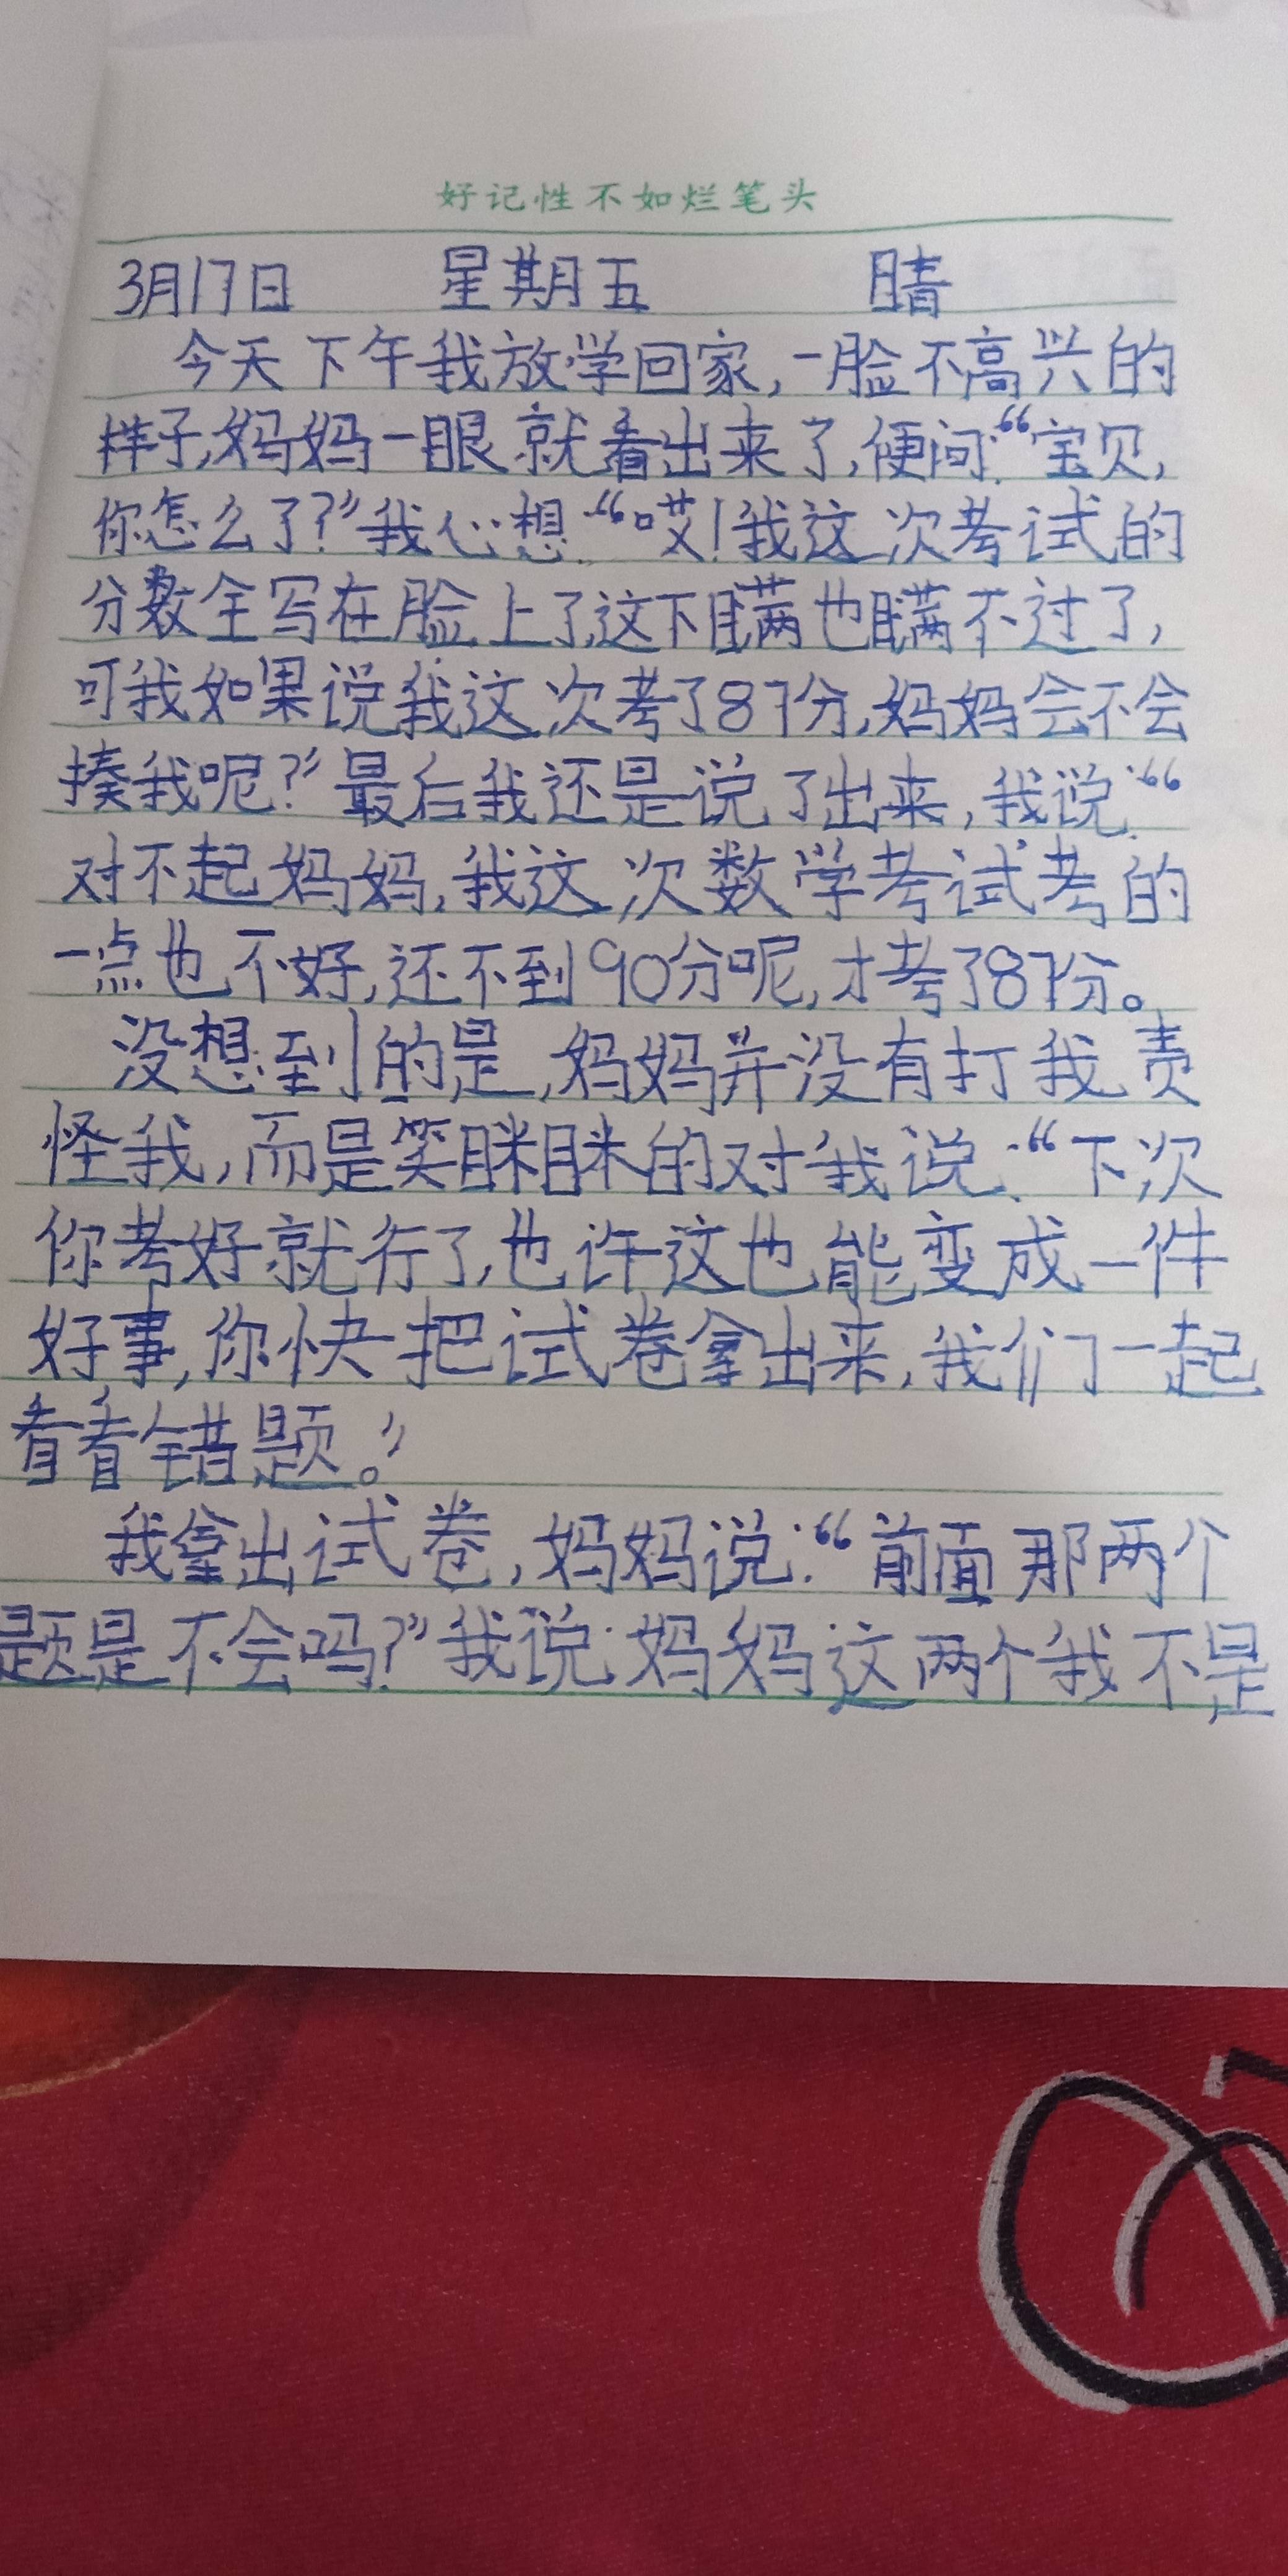 好记性不如烂笔头
3月17日 星期五 晴
今天下午我放学回家,一脸不高兴的
样子,妈妈一眼就看出来了,便问:“宝贝,
你怎么了?”我心想:“哎!我这次考试的
分数全写在脸上了,这下瞒也瞒不过了,
可我如果说我这次考了87分,妈妈会不会
揍我呢?”最后我还是说了出来,我说:“
对不起妈妈,我这次数学考试考的
一点也不好,还不到90分呢,才考了87份。
没想到的是,妈妈并没有打我、责
怪我,而是笑眯眯的对我说:“下次
你考好就行了,也许这也能变成一件
好事,你快把试卷拿出来,我们一起
看看错题。”
我拿出试卷,妈妈说:“前面那两个
题是不会吗?”我说:妈妈这两个我不是